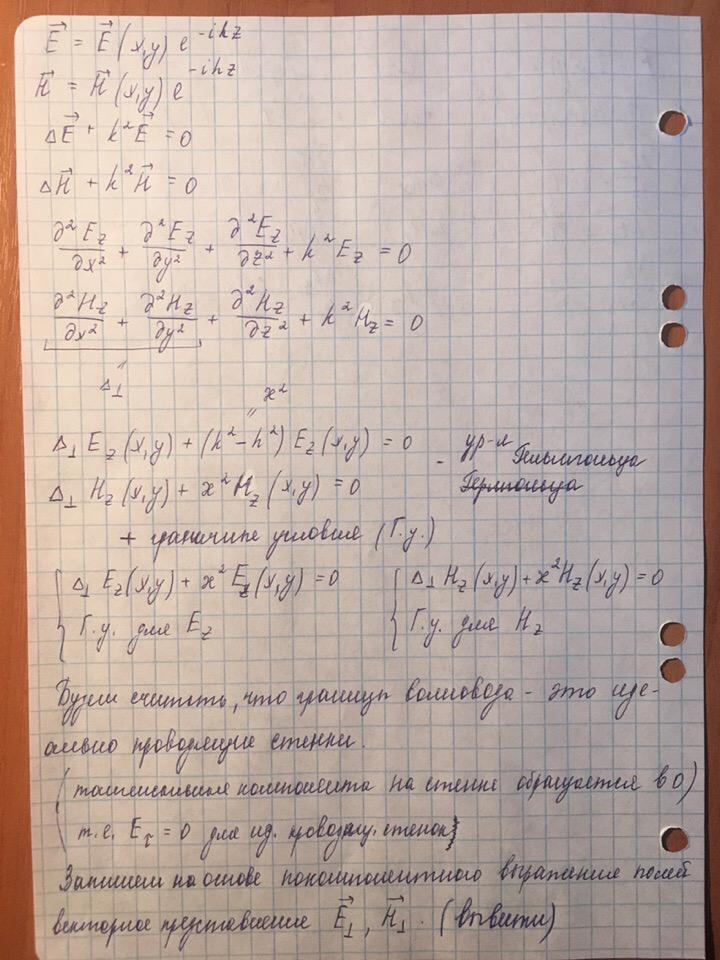 E⃗ = E⃗(x,y) e^{-ihz}
H⃗ = H⃗(x,y) e^{-ihz}
ΔE⃗ + k²E⃗ = 0
ΔH⃗ + k²H⃗ = 0
∂²E_z/∂x² + ∂²E_z/∂y² + ∂²E_z/∂z² + k²E_z = 0
∂²H_z/∂x² + ∂²H_z/∂y² + ∂²H_z/∂z² + k²H_z = 0
Δ⊥ ϰ²
Δ⊥ E_z(x,y) + (k²-h²) E_z(x,y) = 0 - ур-я Гельмгольца
Δ⊥ H_z(x,y) + ϰ²H_z(x,y) = 0
+ граничные условия (Г.у.)
{ Δ⊥ E_z(x,y) + ϰ²E_z(x,y) = 0 { Δ⊥ H_z(x,y) + ϰ²H_z(x,y) = 0
Г.у. для E_z Г.у. для H_z
Будем считать, что границы волновода - это иде-
ально проводящие стенки.
(тангенсальная компонента на стенке обращается в 0)
(т.е. E_τ = 0 для ид. проводящ. стенок)
Запишем на основе покомпонентного выражения полей
векторное представление E⃗⊥, H⃗⊥. (вывести)